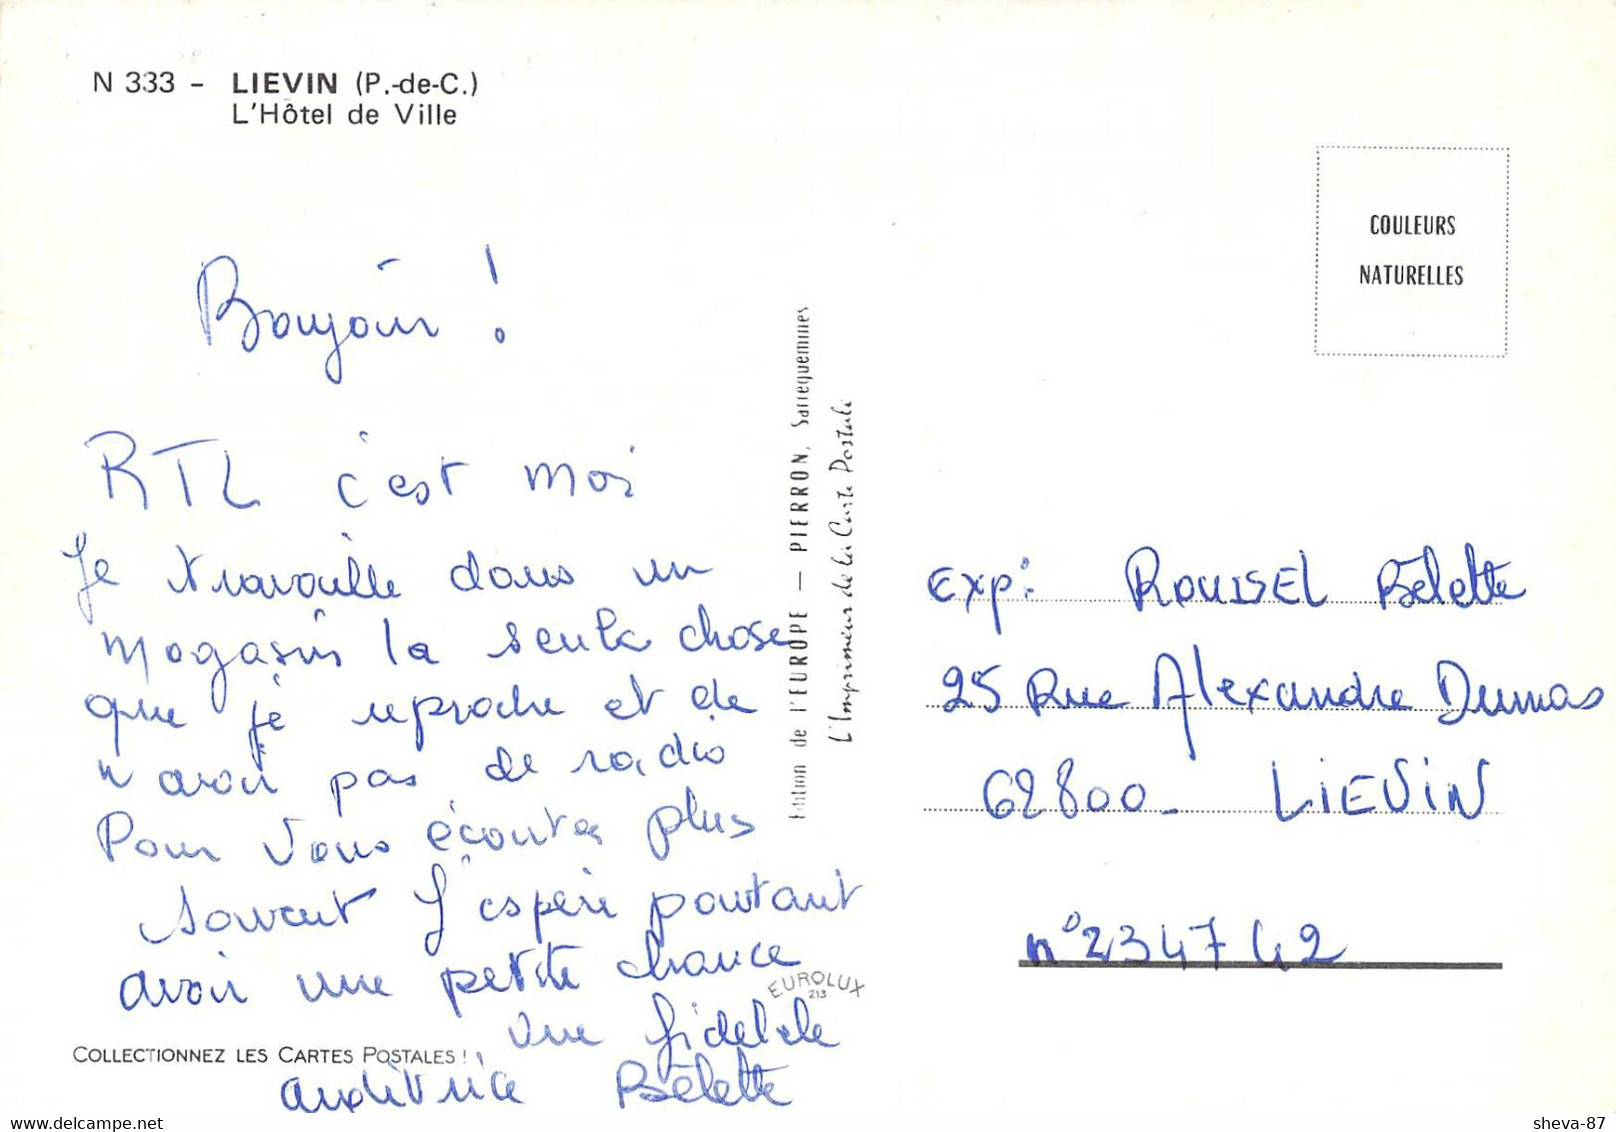 N 333 - LIEVIN (P.-de-C.)
L'Hôtel de Ville
COULEURS
NATURELLES
Bonjour !
RTL c'est moi
Je travaille dans un
magasin la seule chose
que je reproche et de
n'avoir pas de radio
Pour vous écouter plus
souvent J'espère pourtant
avoir une petite chance
une fidelele
auditrice Bèlette
Edition de l'EUROPE — PIERRON, Sarreguemines
L'Imprimeur de la Carte Postale
EUROLUX
213
COLLECTIONNEZ LES CARTES POSTALES !
Exp: ROUSSEL Bèlette
25 Rue Alexandre Dumas
62800 - LIEVIN
n° 2347 42
sheva-87